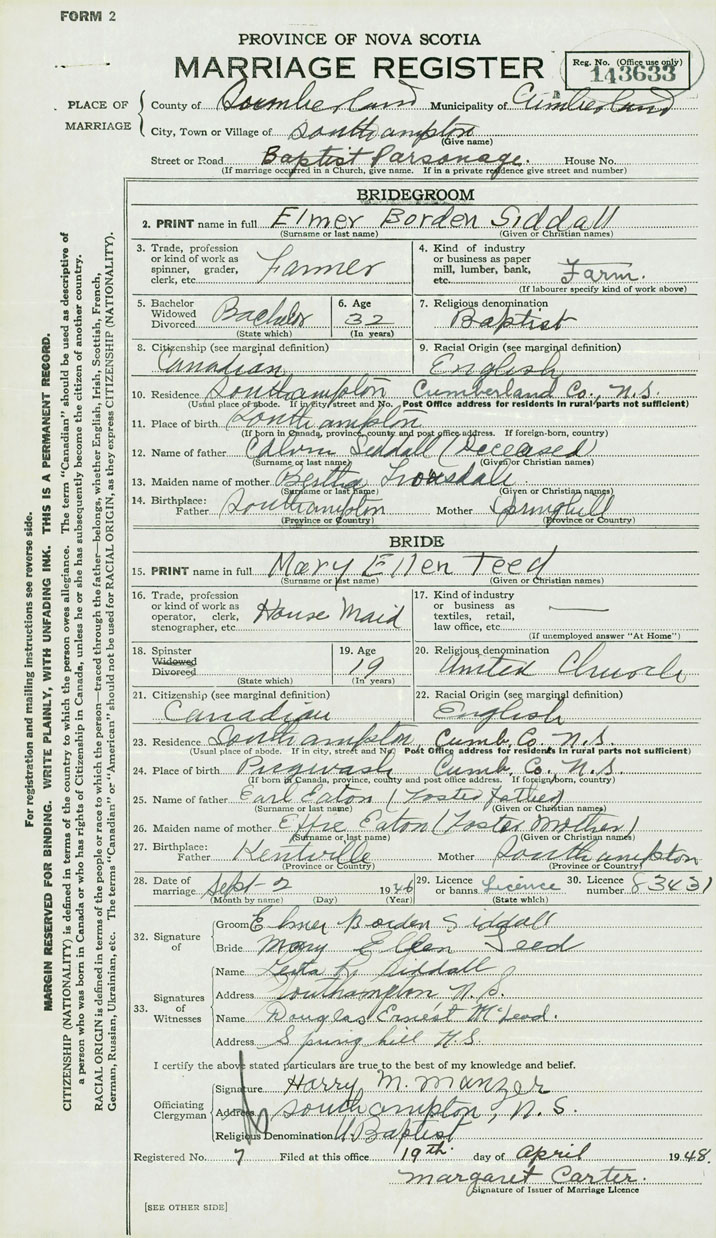 FORM 2
PROVINCE OF NOVA SCOTIA
MARRIAGE REGISTER
Reg. No. (Office use only)
143633
PLACE OF MARRIAGE
County of Cumberland Municipality of Cumberland
City, Town or Village of Southampton
(Give name)
Street or Road Baptist Parsonage. House No.
(If marriage occurred in a Church, give name. If in a private residence give street and number)
BRIDEGROOM
2. PRINT name in full Elmer Borden Siddall
(Surname or last name) (Given or Christian names)
3. Trade, profession or kind of work as spinner, grader, clerk, etc. Farmer
4. Kind of industry or business as paper mill, lumber, bank, etc. Farm.
(If labourer specify kind of work above)
5. Bachelor Widowed Divorced Bachelor
(State which)
6. Age 32
(In years)
7. Religious denomination
Baptist
8. Citizenship (see marginal definition)
Canadian
9. Racial Origin (see marginal definition)
English
10. Residence Southampton Cumberland Co., N.S.
(Usual place of abode. If in city, street and No. Post Office address for residents in rural parts not sufficient)
11. Place of birth Southampton
(If born in Canada, province, county and post office address. If foreign-born, country)
12. Name of father Calvin Siddall (Deceased)
(Surname or last name) (Given or Christian names)
13. Maiden name of mother Bertha
(Surname or last name) (Given or Christian names)
14. Birthplace: Father Southampton Mother Springhill
(Province or Country) (Province or Country)
BRIDE
15. PRINT name in full Mary Ellen Teed
(Surname or last name) (Given or Christian names)
16. Trade, profession or kind of work as operator, clerk, stenographer, etc. House Maid
17. Kind of industry or business as textiles, retail, law office, etc. —
(If unemployed answer "At Home")
18. Spinster Widowed Divorced
(State which)
19. Age
19
(In years)
20. Religious denomination
United Church
21. Citizenship (see marginal definition)
Canadian
22. Racial Origin (see marginal definition)
English
23. Residence Southampton Cumb. Co. N.S.
(Usual place of abode. If in city, street and No. Post Office address for residents in rural parts not sufficient)
24. Place of birth Pugwash Cumb. Co., N.S.
(If born in Canada, province, county and post office address. If foreign-born, country)
25. Name of father Earl Eaton (Foster father)
(Surname or last name) (Given or Christian names)
26. Maiden name of mother Effie Eaton (Foster Mother)
(Surname or last name) (Given or Christian names)
27. Birthplace: Father Kentville Mother Southampton
(Province or Country) (Province or Country)
28. Date of marriage Sept-2 1946
(Month by name) (Day) (Year)
29. Licence or banns Licence
(State which)
30. Licence number 83431
32. Signature of
Groom Elmer Borden Siddall
Bride Mary Ellen Teed
33. Signatures of Witnesses
Name Siddall
Address Southampton N.S.
Name Douglas Ernest McLeod.
Address Springhill N.S.
I certify the above stated particulars are true to the best of my knowledge and belief.
Officiating Clergyman
Signature Harry M. Manzer
Address Southampton, N.S.
Religious Denomination U. Baptist
Registered No. 7 Filed at this office 19th. day of April 1948.
Margaret Carter.
Signature of Issuer of Marriage Licence
[SEE OTHER SIDE]
For registration and mailing instructions see reverse side.
MARGIN RESERVED FOR BINDING. WRITE PLAINLY, WITH UNFADING INK. THIS IS A PERMANENT RECORD.
CITIZENSHIP (NATIONALITY) is defined in terms of the country to which the person owes allegiance. The term "Canadian" should be used as descriptive of
a person who was born in Canada or who has rights of Citizenship in Canada, unless he or she has subsequently become the citizen of another country.
RACIAL ORIGIN is defined in terms of the people or race to which the person—traced through the father—belongs, whether English, Irish, Scottish, French,
German, Russian, Ukrainian, etc. The terms "Canadian" or "American" should not be used for RACIAL ORIGIN, as they express CITIZENSHIP (NATIONALITY).